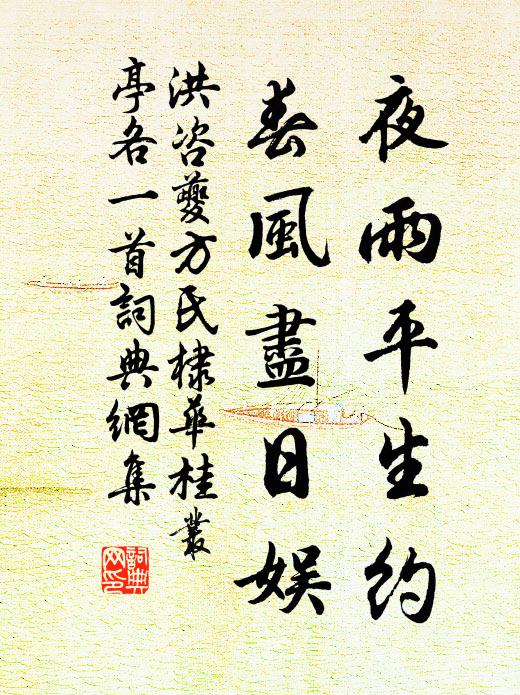 夜雨平生約
春風盡日娱
洪咨夔方氏棣華桂叢
亭各一首詞典網集
詞典網印